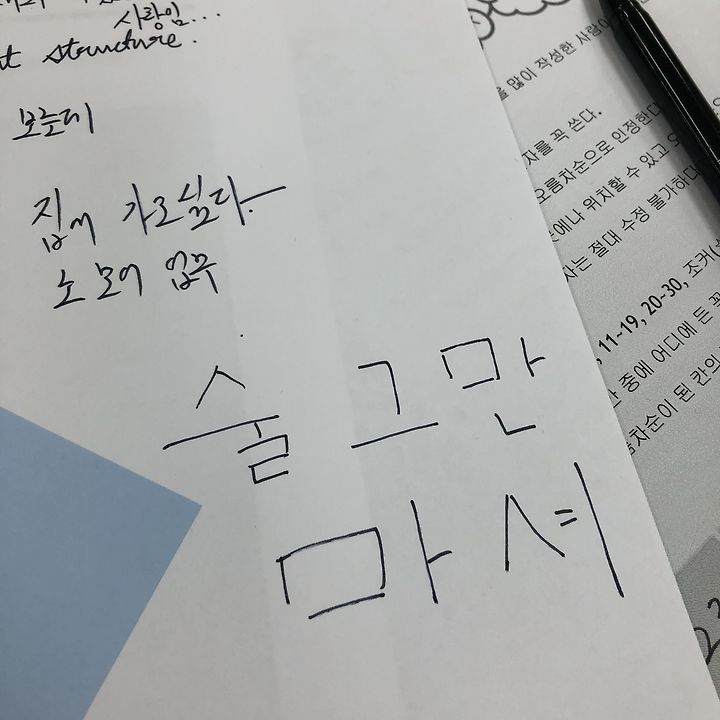 사랑임...
structure.
보는데
집에 가고싶다.
노 모어 업무
술 그만
마셔
을 많이 작성한 사람이
자를 꼭 쓴다.
오름차순으로 인정한다
에나 위치할 수 있고
자는 절대 수정 불가하다
11-19, 20-30, 조커
중에 어디에 든 꼭
차순이 된 칸의